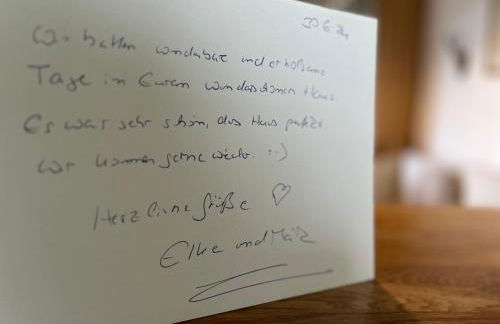 30.6.24
Wir hatten wunderbare und erholsame
Tage in Eurem wunderschönen Haus
Es war sehr schön, das Haus perfekt.
Wir kommen gerne wieder. :-)
Herzliche Grüße ♡
Elke und